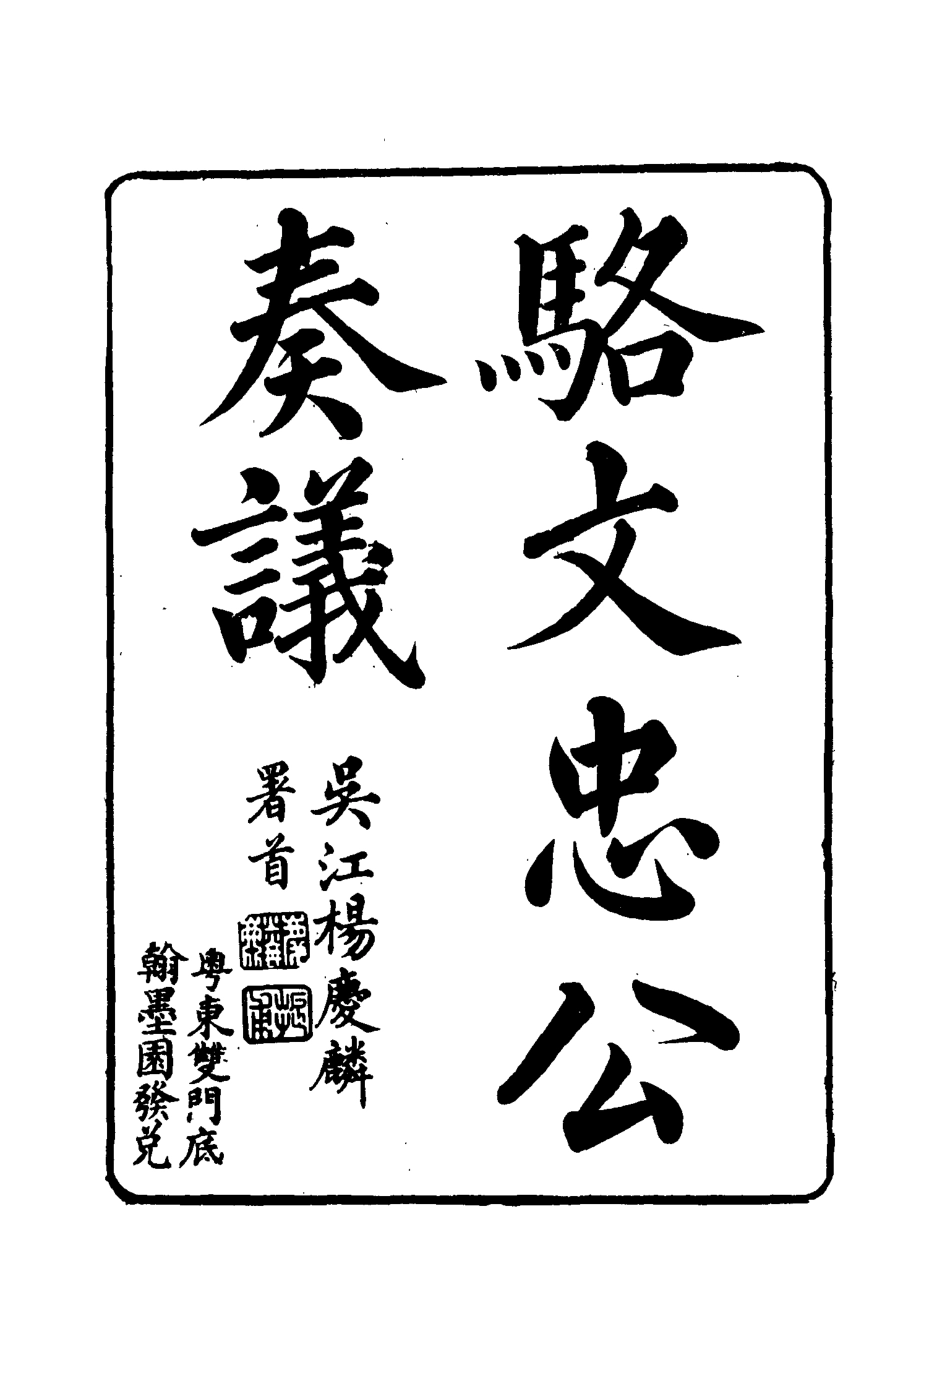 駱文忠公
奏議
吳江楊慶麟
署首
粵東雙門底
翰墨園發兑